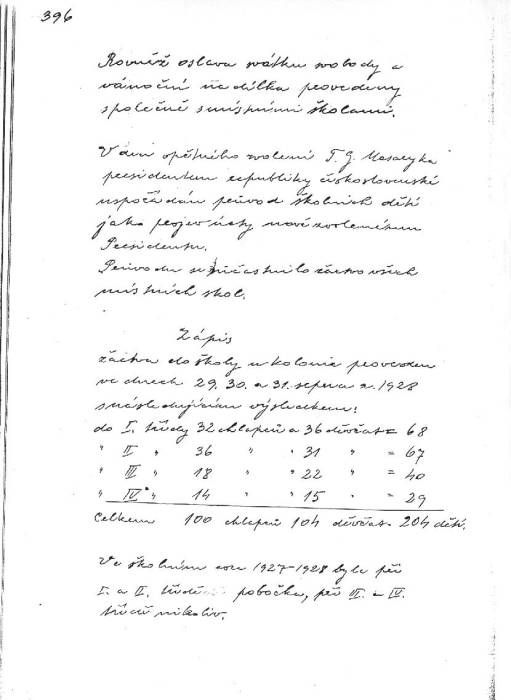 396
Rovněž oslava svátku svobody a
vánoční nadílka provedeny
společně s místními školami.
V den opětného zvolení T. G. Masaryka
presidentem republiky československé
uspořádán průvod školních dětí
jako projev úcty nově zvolenému
Presidentu.
Průvodu se súčastnilo žactvo všech
místních škol.
Zápis
žáctva do školy u kolonie proveden
ve dnech 29, 30. a 31. srpna r. 1928
s následujícím výsledkem:
do I. třídy 32 chlapců a 36 děvčat = 68
" II " 36 " " 31 " = 67
" III " 18 " " 22 " = 40
" IV " 14 " " 15 " = 29
Celkem 100 chlapců 104 děvčat 204 dětí.
Ve školním roce 1927-1928 byla při
I. a II. třídě pobočka, při III. a IV.
třídě nikoliv.